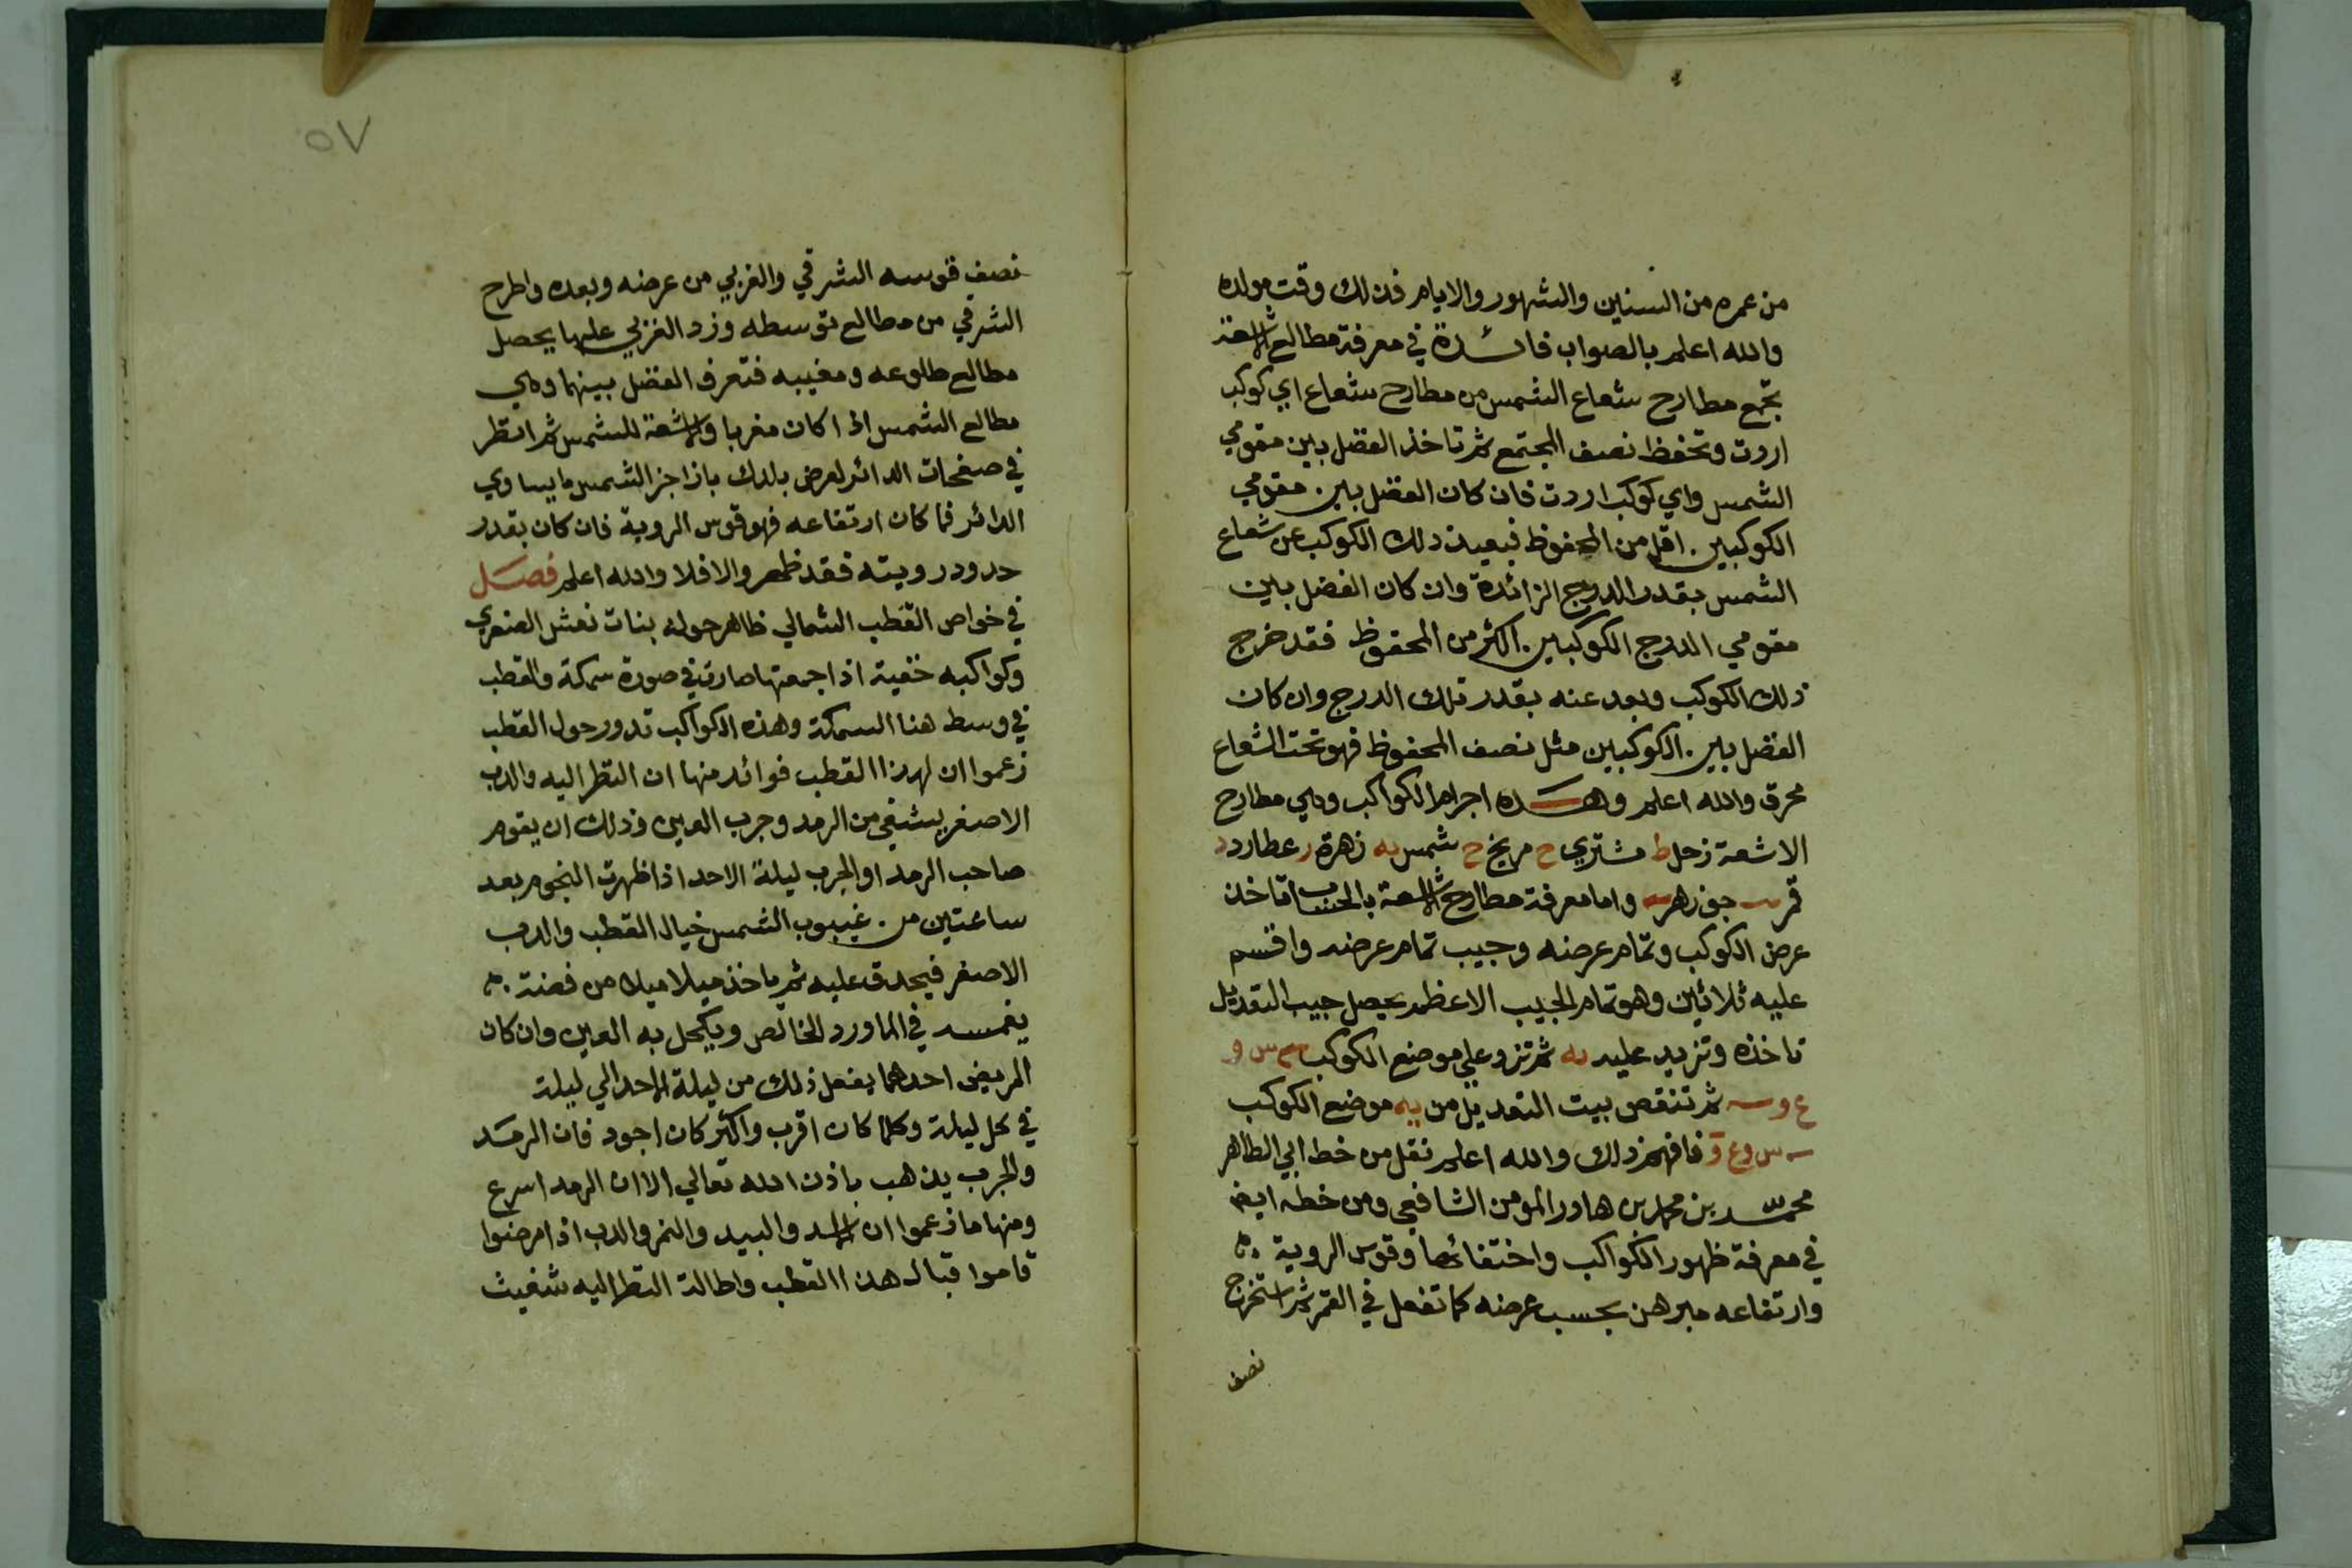 من عمره من السنين والشهور والايام فذلك وقت مولده
والله اعلم بالصواب فائدة في معرفة مطالع الاشعة
تجمع مطارح شعاع الشمس من مطارح شعاع اي كوكب
اردت وتحفظ نصف المجتمع ثم تاخذ الفضل بين مقومي
الشمس واي كوكب اردت فان كان الفضل بين مقومي
الكوكبين اقل من المحفوظ فبعيد ذلك الكوكب عن شعاع
الشمس بقدر الدرج الزائدة وان كان الفضل بين
مقومي الدرج الكوكبين اكثر من المحفوظ فقد خرج
ذلك الكوكب وبعد عنه بقدر تلك الدرج وان كان
الفضل بين الكوكبين مثل نصف المحفوظ فهو تحت الشعاع
محرق والله اعلم وهذه اجرام الكواكب وهي مطارح
الاشعة زحل ط مشتري ح مريخ ح شمس يه زهرة ر عطارد د
قمر جوزهر واما معرفة مطارح الاشعة بالحساب تاخذ
عرض الكوكب وتمام عرضه وجيب تمام عرضه واقسم
عليه ثلاثين وهو تمام الجيب الاعظم يحصل جيب التعديل
تاخذه وتزيد عليه يه ثم تزد علي موضع الكوكب س و
ع و ثم تنقص بيت التعديل من يه موضع الكوكب
س وع و فافهم ذلك والله اعلم نقل من خط ابي الطاهر
محمد بن محمد بن هاور المومن الشافعي ومن خطه ايضا
في معرفة ظهور الكواكب واختفائها وقوس الروية
وارتفاعه مبرهن بحسب عرضه كما تفعل في القمر ثم استخرج
نصف
٥٧
نصف قوسه الشرقي والغربي من عرضه وبعده واطرح
الشرقي من مطالع توسطه وزد الغربي عليها يحصل
مطالع طلوعه ومغيبه فتعرف الفضل بينهما وهي
مطالع الشمس اذا كان مغربا والاشعة للشمس ثم انظر
في صفحات الدائر لعرض بلدك باذا جز الشمس ما يساوي
الدائر فما كان ارتفاعه فهو قوس الروية فان كان بقدر
حدود رويته فقد ظهر والا فلا والله اعلم فصل
في خواص القطب الشمالي ظاهر حوله بنات نعش الصغري
وكواكبه خفية اذا جمعتها صارت في صورة سمكة والقطب
في وسط هذا السمكة وهذه الكواكب تدور حول القطب
زعموا ان لهذا القطب فوائد منها ان النظر اليه والدب
الاصغر يشفي من الرمد وجرب العين وذلك ان يقوم
صاحب الرمد او الجرب ليلة الاحد اذا ظهرت النجوم بعد
ساعتين من غيبوب الشمس خيال القطب والدب
الاصغر فيحدق عليه ثم ياخذ ميلا ميلا من فضة
يغمسه في الماورد الخالص ويكحل به العين وان كان
المريض احدهما يفعل ذلك من ليلة الاحد الي ليلة
في كل ليلة وكلما كان اقرب واكثر كان اجود فان الرمد
والجرب يذهب باذن الله تعالي الا ان الرمد اسرع
ومنها ما زعموا ان الاسد والبيد والنمر والدب اذا مرضوا
قاموا قبال هذا القطب واطالة النظر اليه شفيت